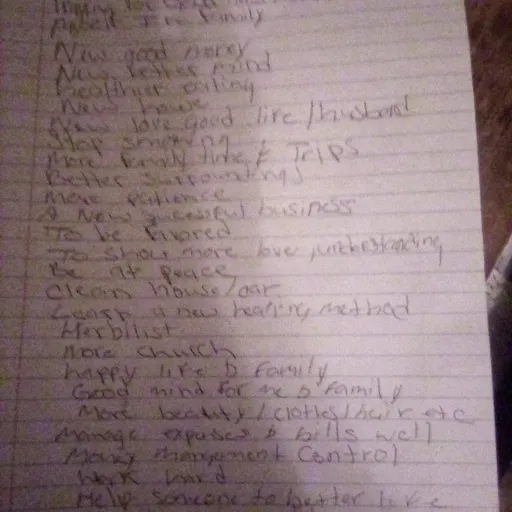 for
family
New good money
New better mind
healthier eating
New house
New love good life/husband
Stop smoking
More family time & Trips
Better surroundings
More patience
A New sucessful business
To be favored
To show more love, understanding
Be at peace
Clean house/car
Learn a new healing method
Herbilist
More church
happy life & family
Good mind for me & family
More beauty/clothes/hair etc
Manage expenses & bills well
Money management Control
Work hard
Help someone to better life